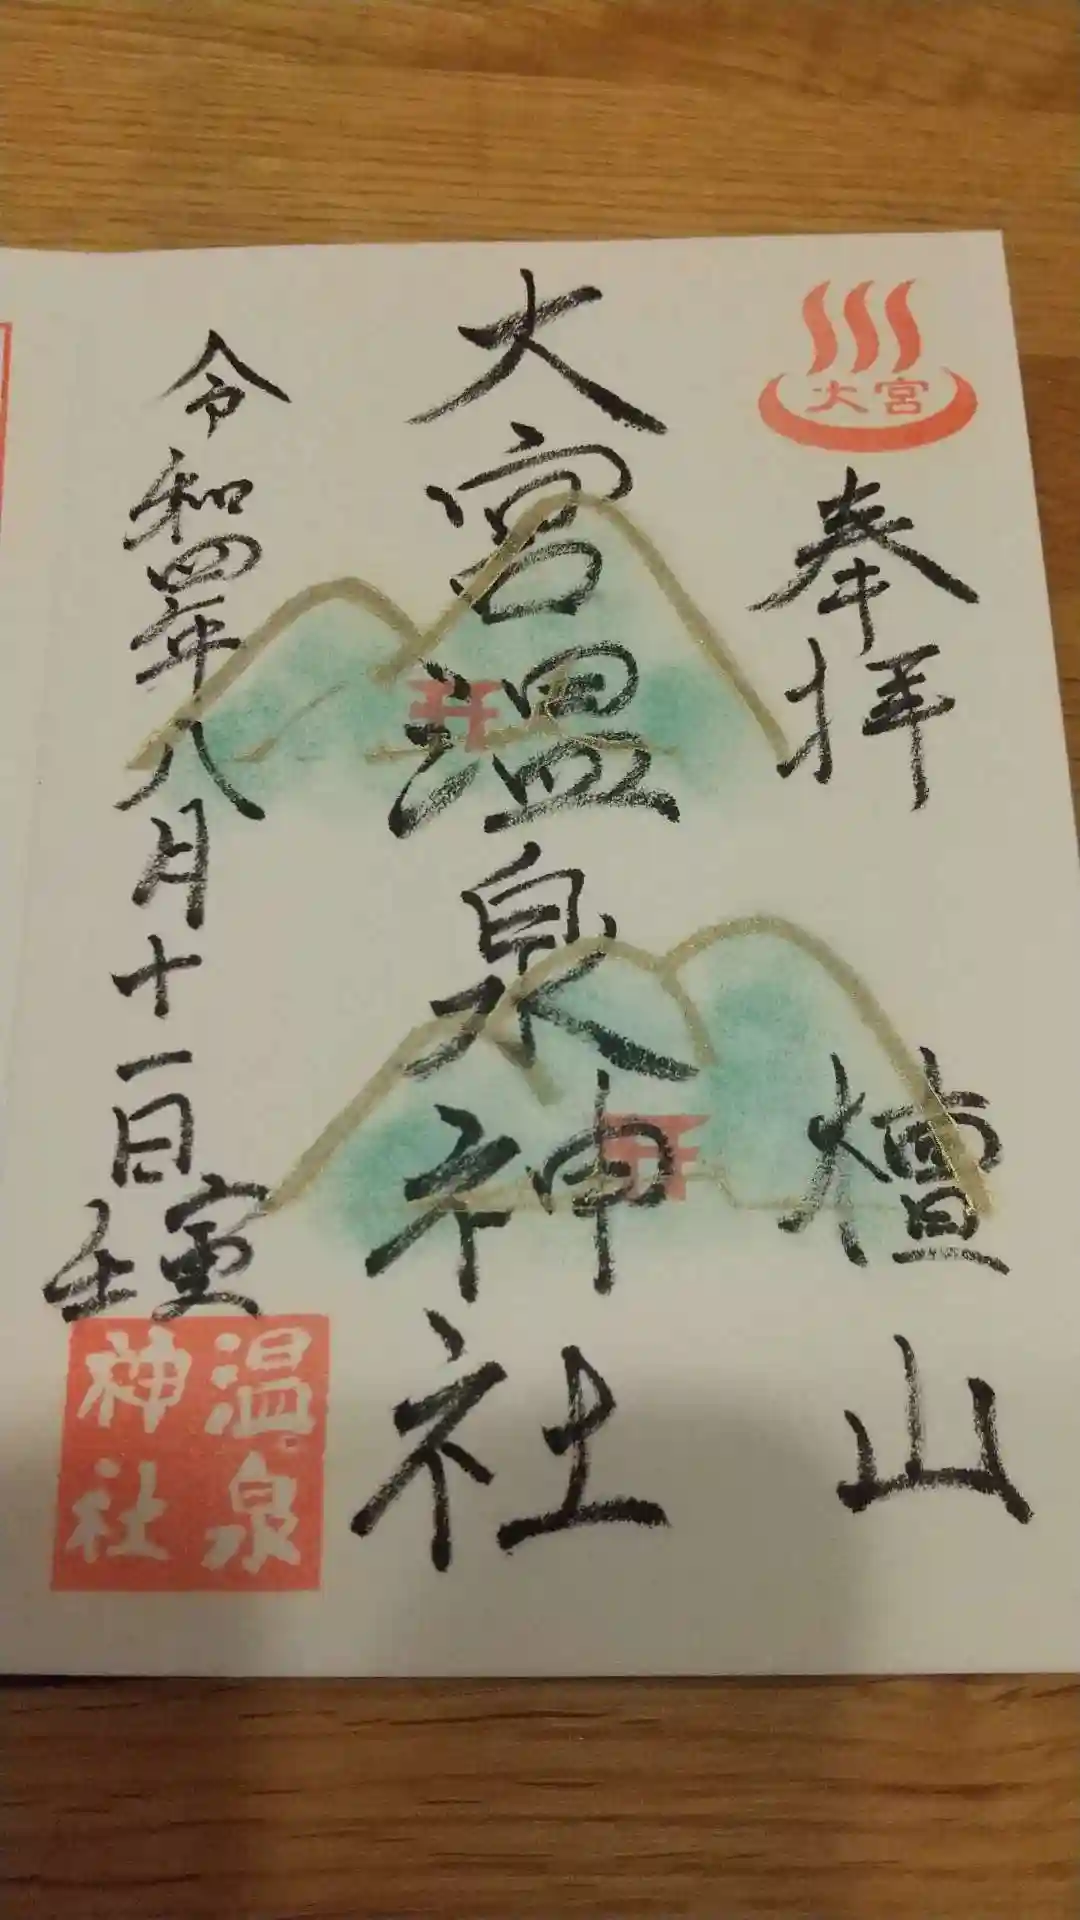 大宮
奉拝
檀山
大宮温泉神社
令和四年八月十一日
壬寅
温泉
神社